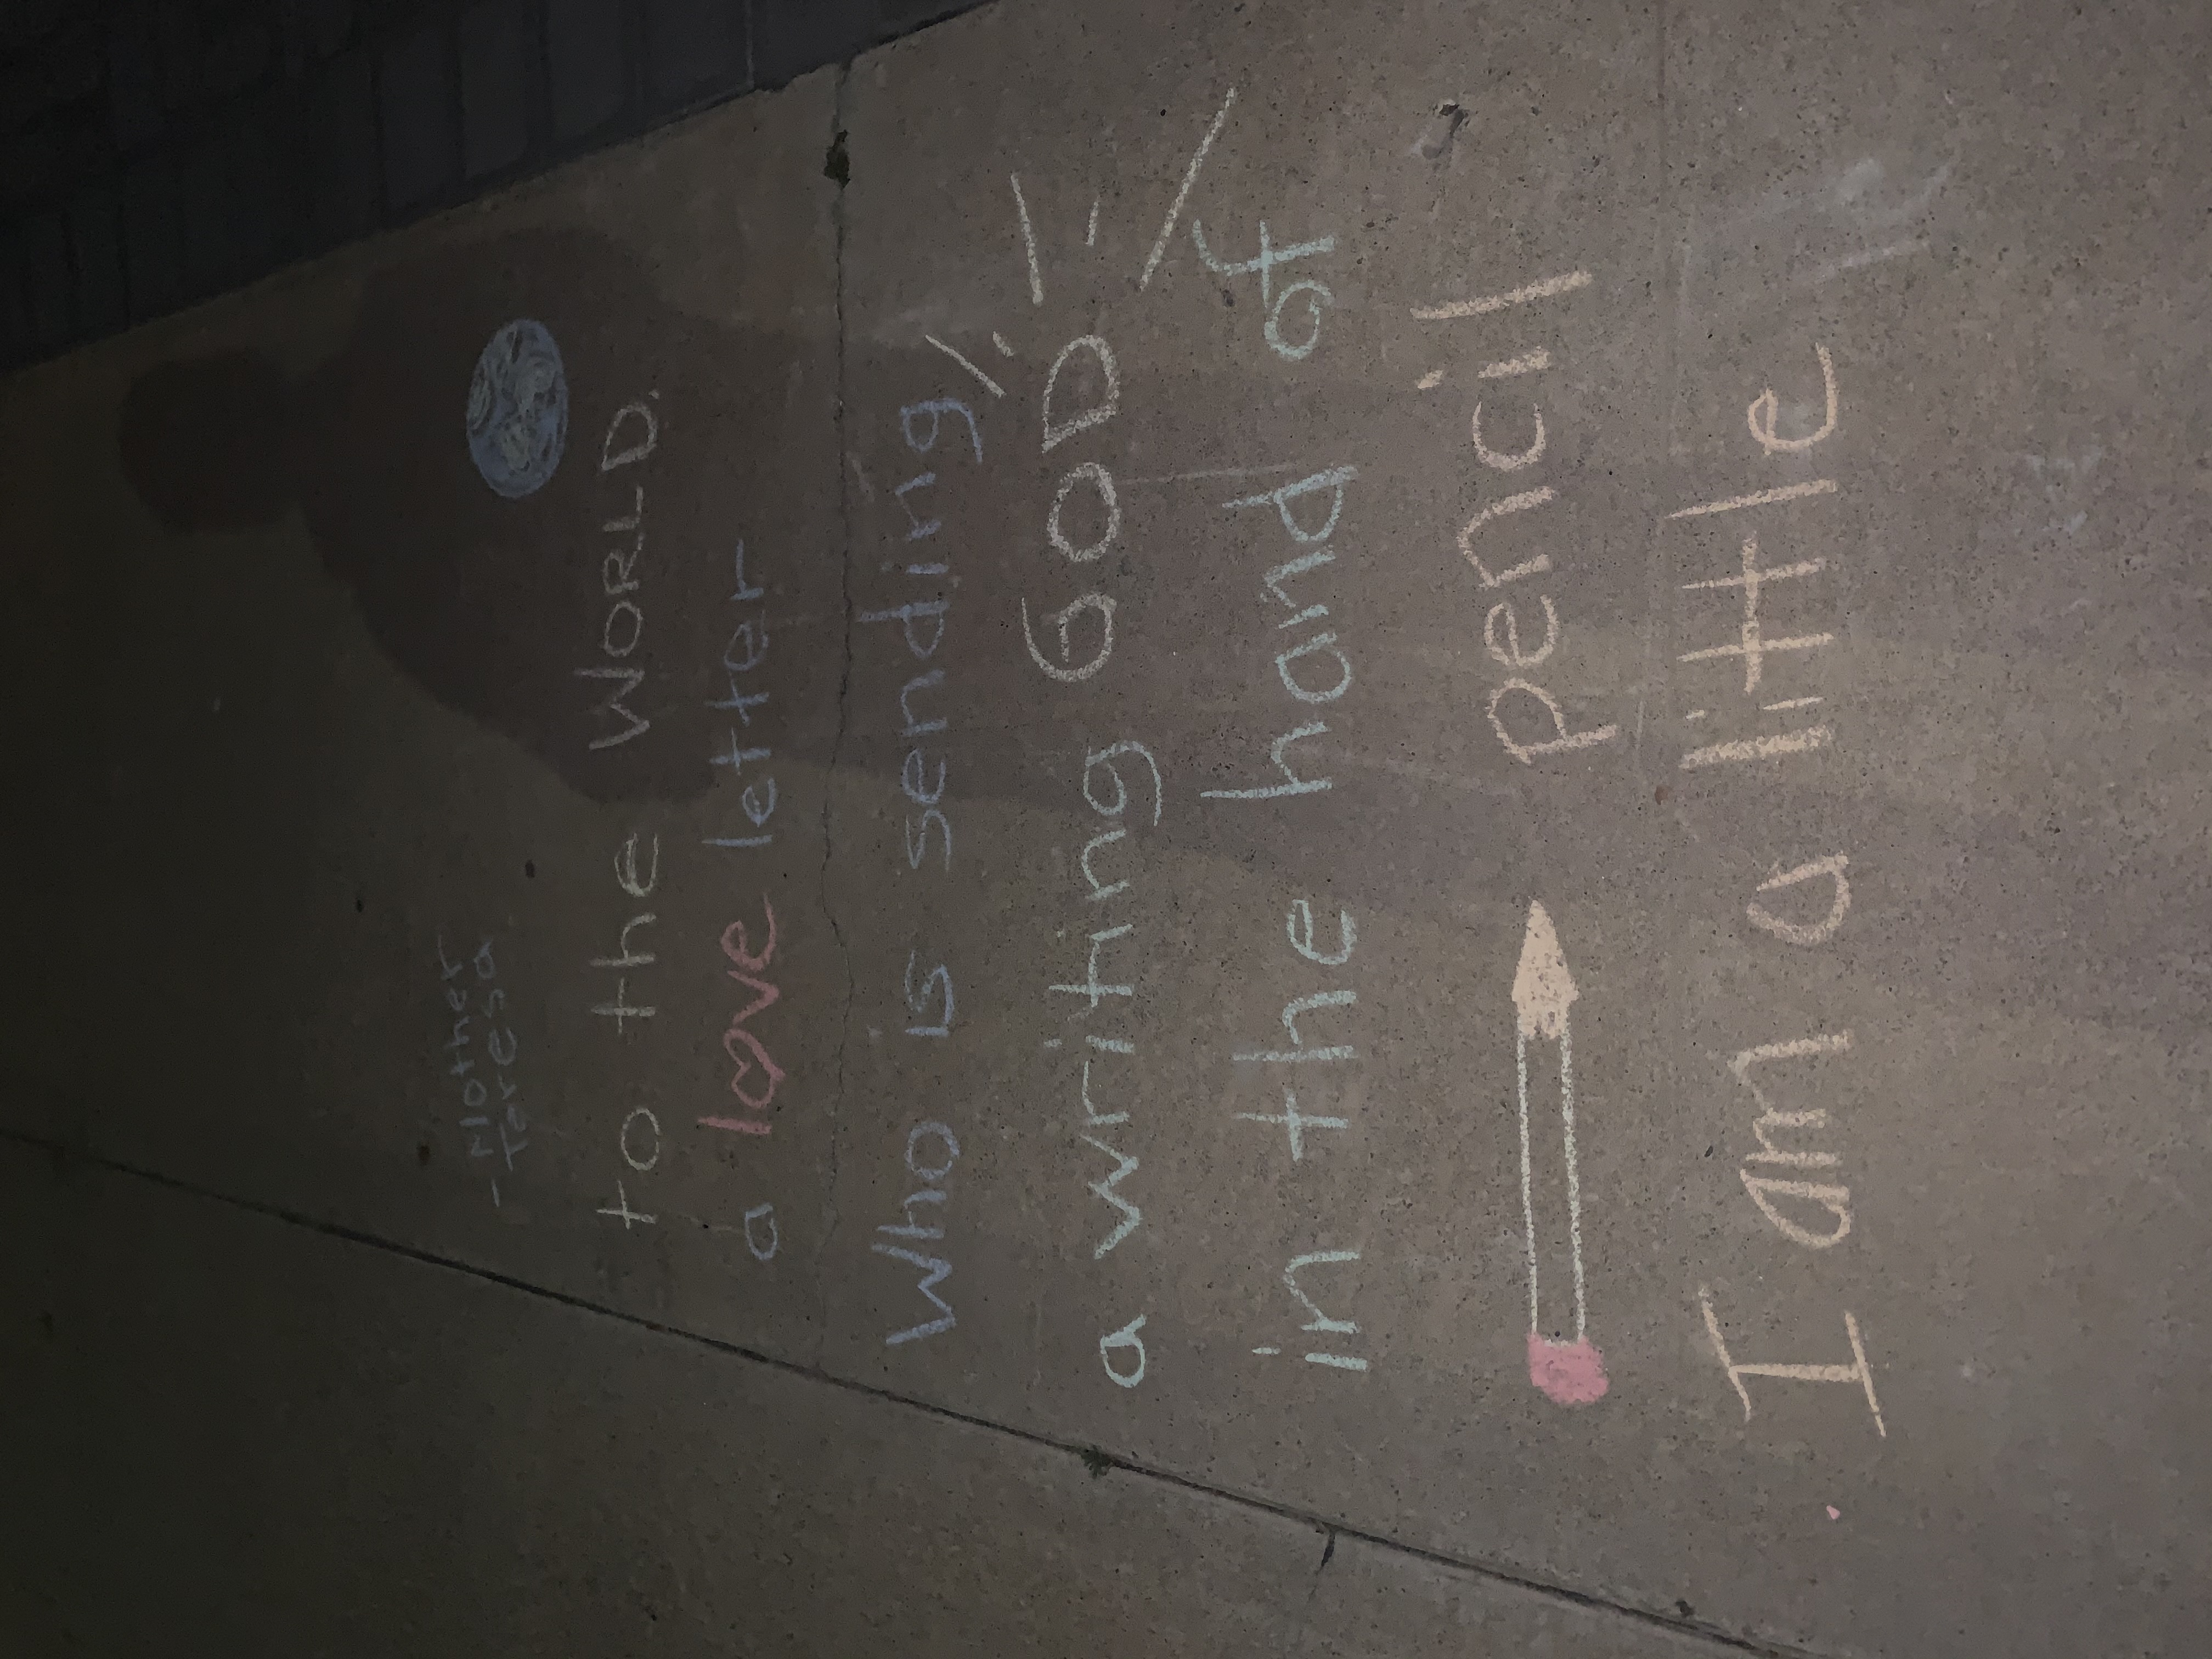 I am a little
pencil
in the hand of
a writing GOD
who is sending
a love letter
to the WORLD.
- Mother
Teresa